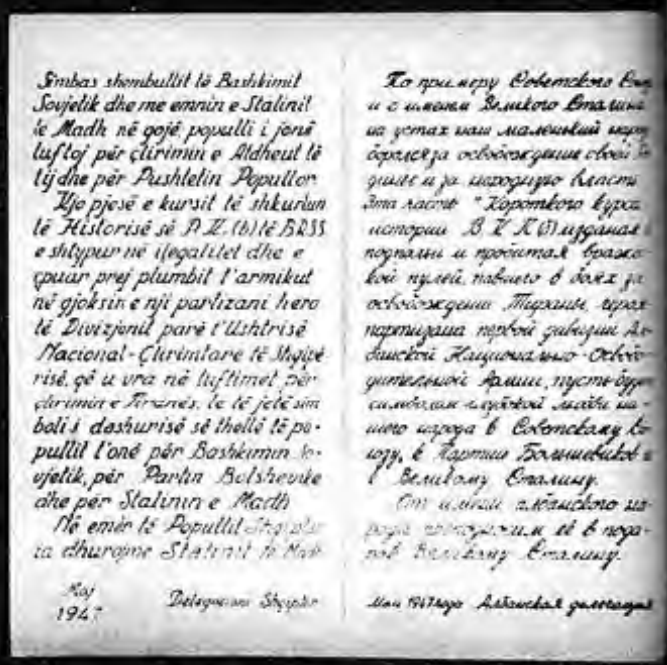 Simbas shembullit të Bashkimit
Sovjetik dhe me emnin e Stalinit
të Madh në gojë, populli i jonë
luftoj për çlirimin e Atdheut të
tij dhe për Pushtetin Popullor
Kjo pjesë e kursit të shkurtun
të Historisë së P.K.(b) të BRSS
e shtypur në ilegalitet dhe e
çpuar prej plumbit t'armikut
në gjoksin e nji partizani hero
të Divizjonit parë t'Ushtrisë
Nacional-Çlirimtare të Shqipë
risë, që u vra në luftimet për
çlirimin e Tiranës, le të jetë sim
boli i dashurisë së thellë të po-
pullit t'onë për Bashkimin So-
vjetik, për Partin Bolshevike
dhe për Stalinin e Madh
Në emër të Popullit
ia dhurojmë Stalinit të Madh
Maj
1947
Delegacioni Shqiptar
По примеру Советского
и с именем Великого Сталина
на устах наш маленький народ
боролся за освобождение своей
и за народную власть
Эта часть "Короткого курса
истории В К П (б) изданая
подпольи и пробитая вражес-
кой пулей, павшего в боях за
освобождении Тираны, героя
партизана первой дивизии Ал-
банской Национально-Освобо-
дительной Армии, пусть будет
символом глубокой любви на-
шего народа к Советскому Со-
юзу, к Партии Большевиков и
к Великому Сталину.
От имени албанского на-
рода преподносим её в пода-
рок Великому Сталину.
Май 1947 года Албанская делегация